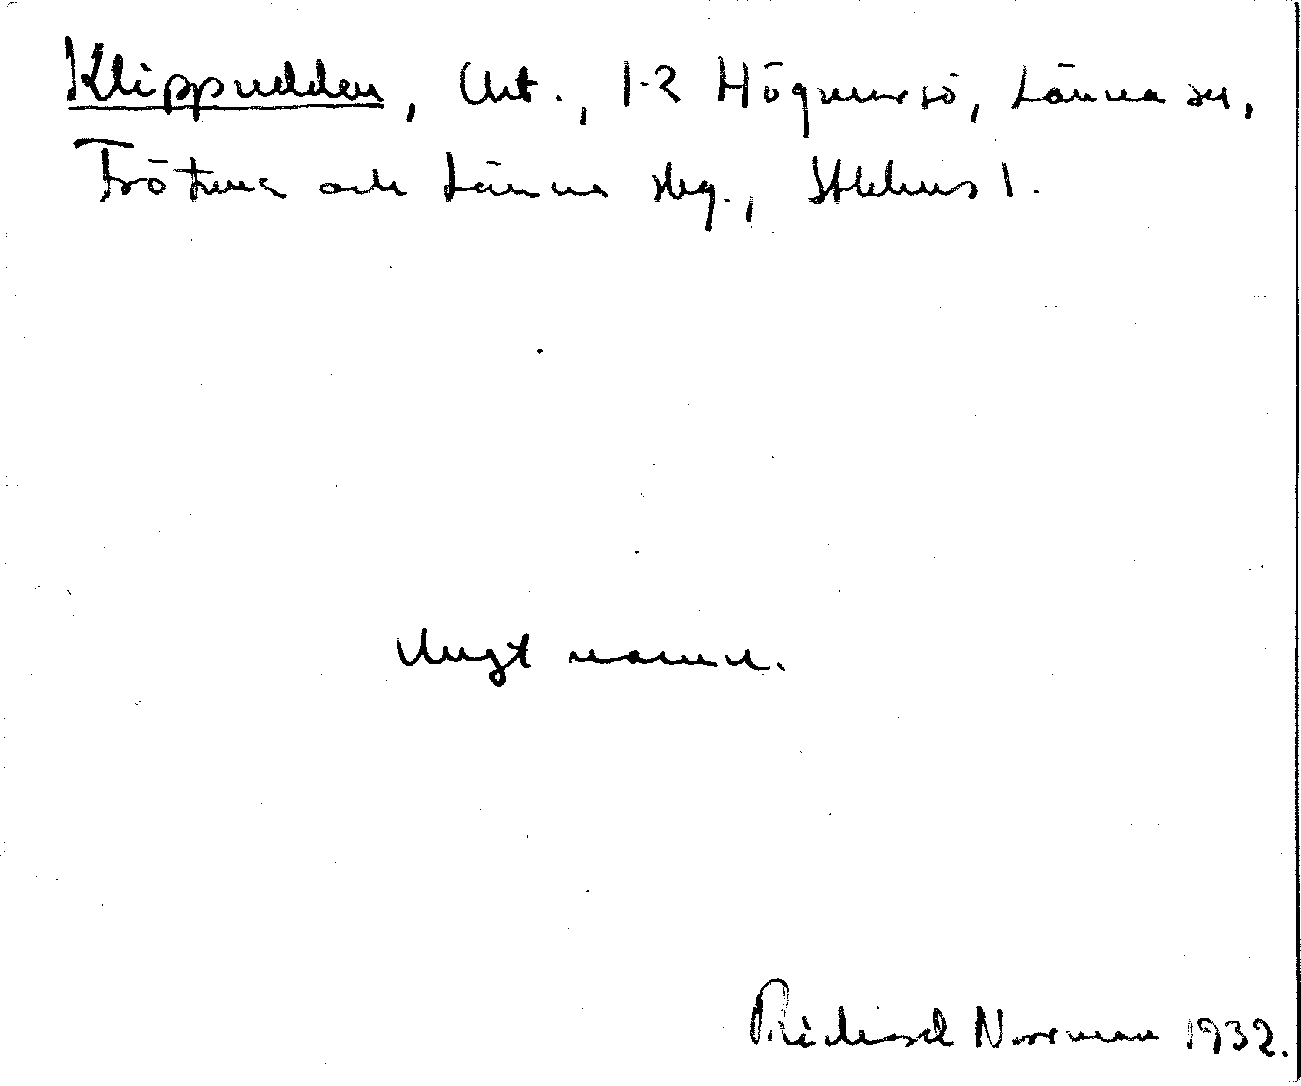 Klippudden, Utt., 1-2 Högmarsö, Länna sn,
Frötuna och Länna skg., Sthlms l.
Ungt namn.
Richard Norrman 1932.